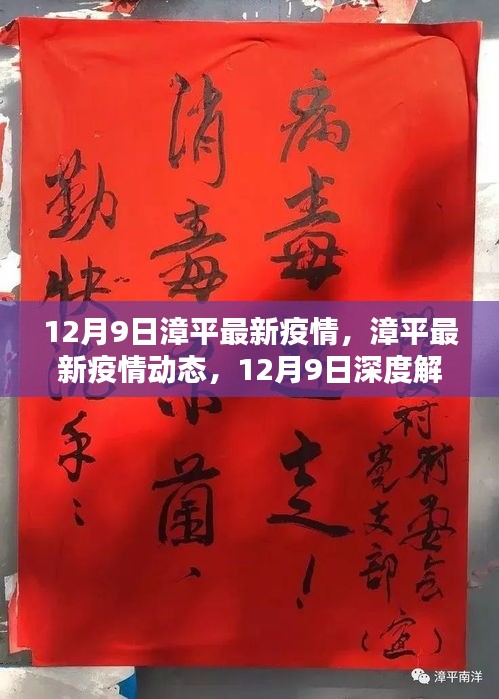 病毒
走！
消毒
菌、
勤快洗手
12月9日漳平最新疫情，漳平最
新疫情动态，12月9日深度解
村村委会
党支部
（宣）
漳平南洋